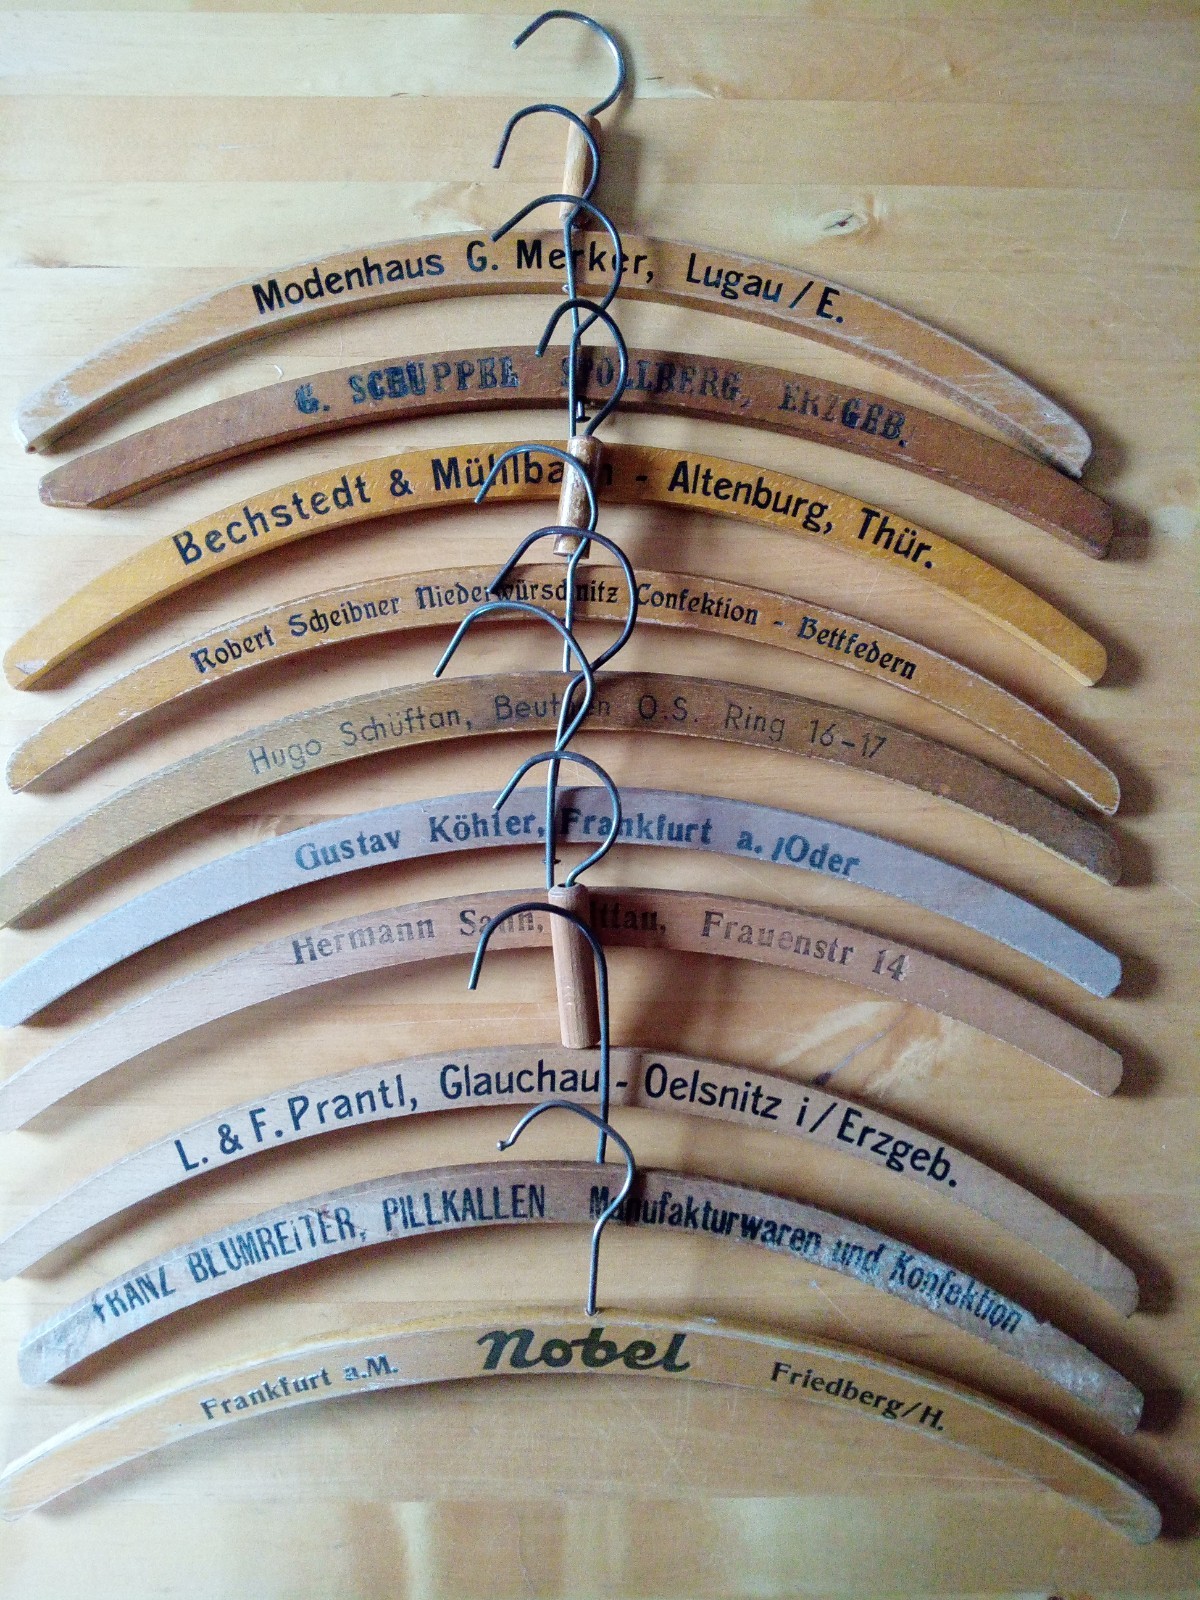 Modenhaus G. Merker, Lugau / E.
G. SCHÜPPEL STOLLBERG, ERZGEB.
Bechstedt & Mühlbach - Altenburg, Thür.
Robert Scheibner Niederwürschnitz Confektion - Bettfedern
Hugo Schüftan, Beuthen O.S. Ring 16-17
Gustav Köhler, Frankfurt a. /Oder
Hermann Frauenstr 14
L. & F. Prantl, Glauchau - Oelsnitz i/Erzgeb.
FRANZ BLUMREITER, PILLKALLEN Manufakturwaren und Konfektion
Nobel
Frankfurt a.M. Friedberg/H.